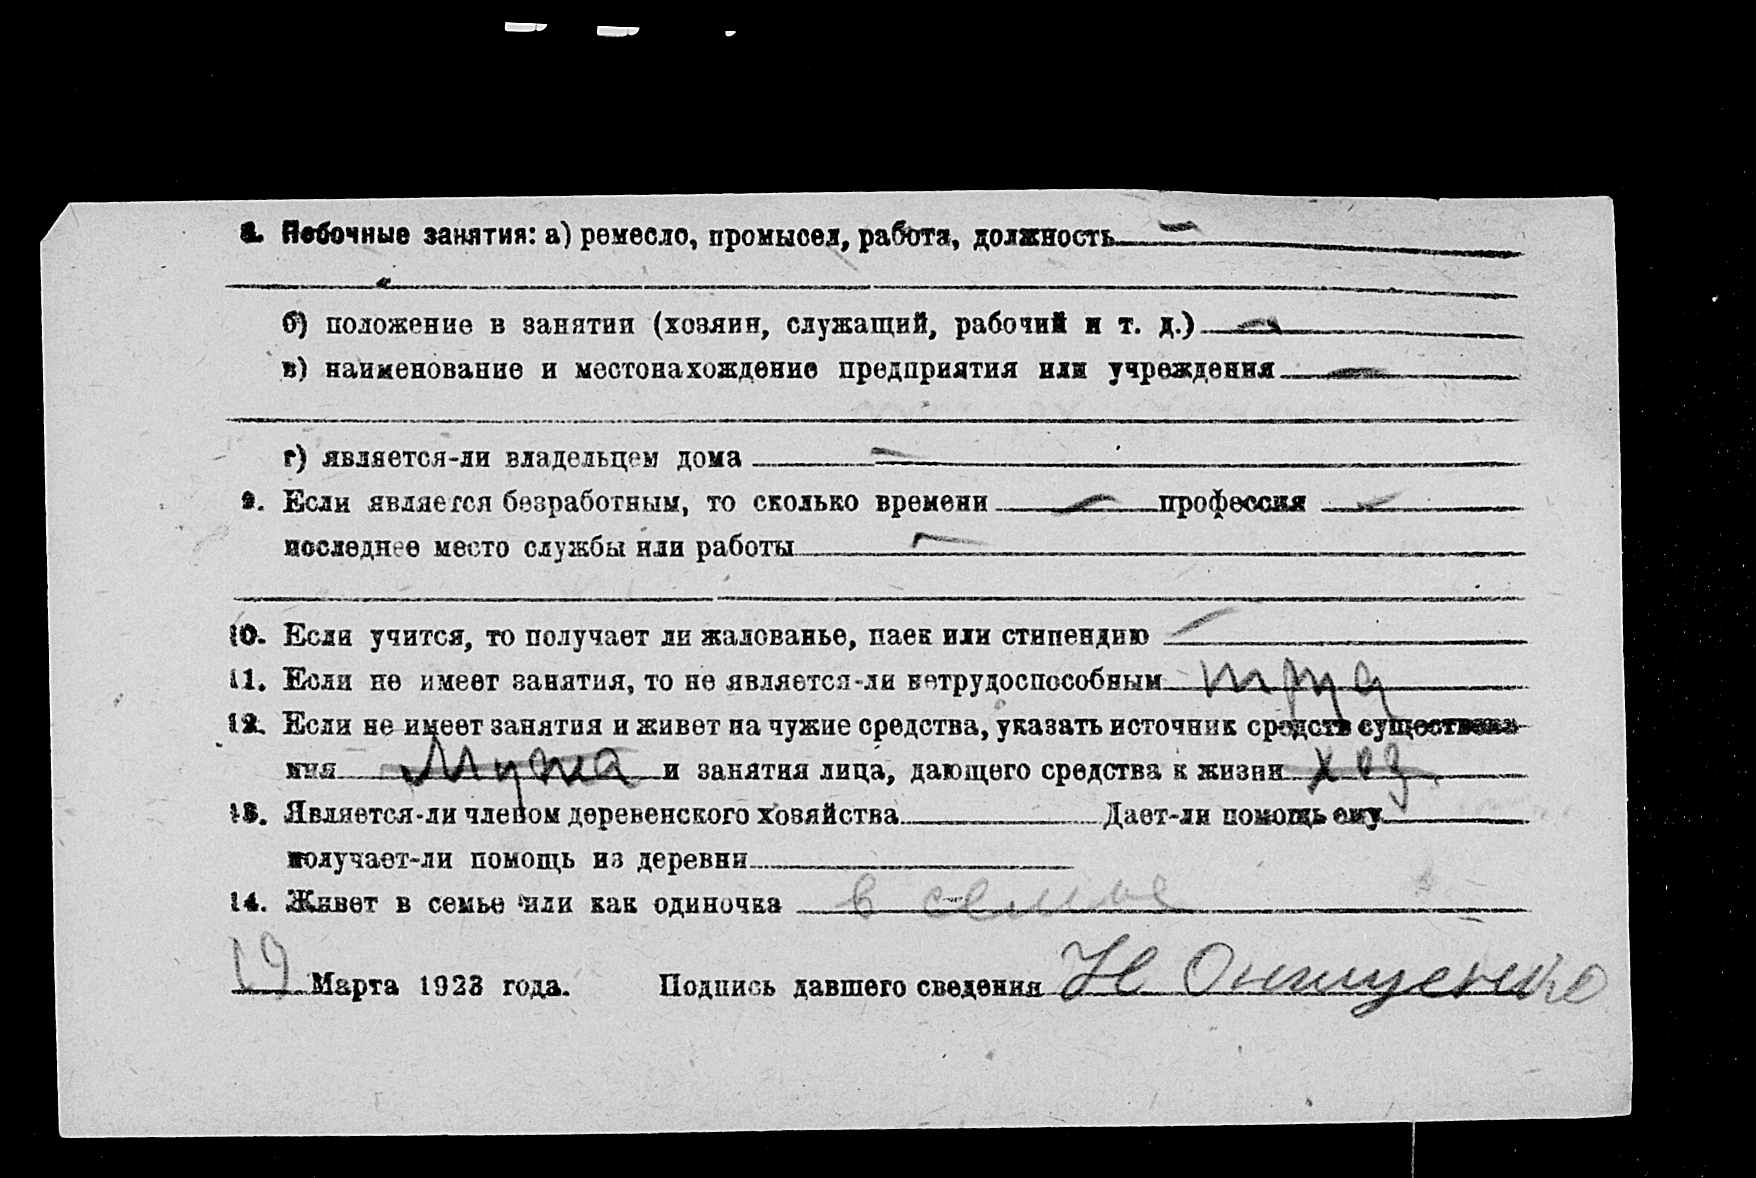 8. Побочные занятия: а) ремесло, промысел, работа, должность —
"
б) положение в занятии (хозяин, служащий, рабочий и т. д.) —
в) наименование и местонахождение предприятия или учреждения —
г) является-ли владельцем дома —
9. Если является безработным, то сколько времени — профессия —
последнее место службы или работы —
10. Если учится, то получает ли жалованье, паек или стипендию —
11. Если не имеет занятия, то не является-ли нетрудоспособным труд
12. Если не имеет занятия и живет на чужие средства, указать источник средств существова-
ния мужа и занятия лица, дающего средства к жизни хоз.
13. Является-ли членом деревенского хозяйства Дает-ли помощь ему
получает-ли помощь из деревни
14. Живет в семье или как одиночка в семье
19 Марта 1923 года. Подпись давшего сведения Н Онищенко